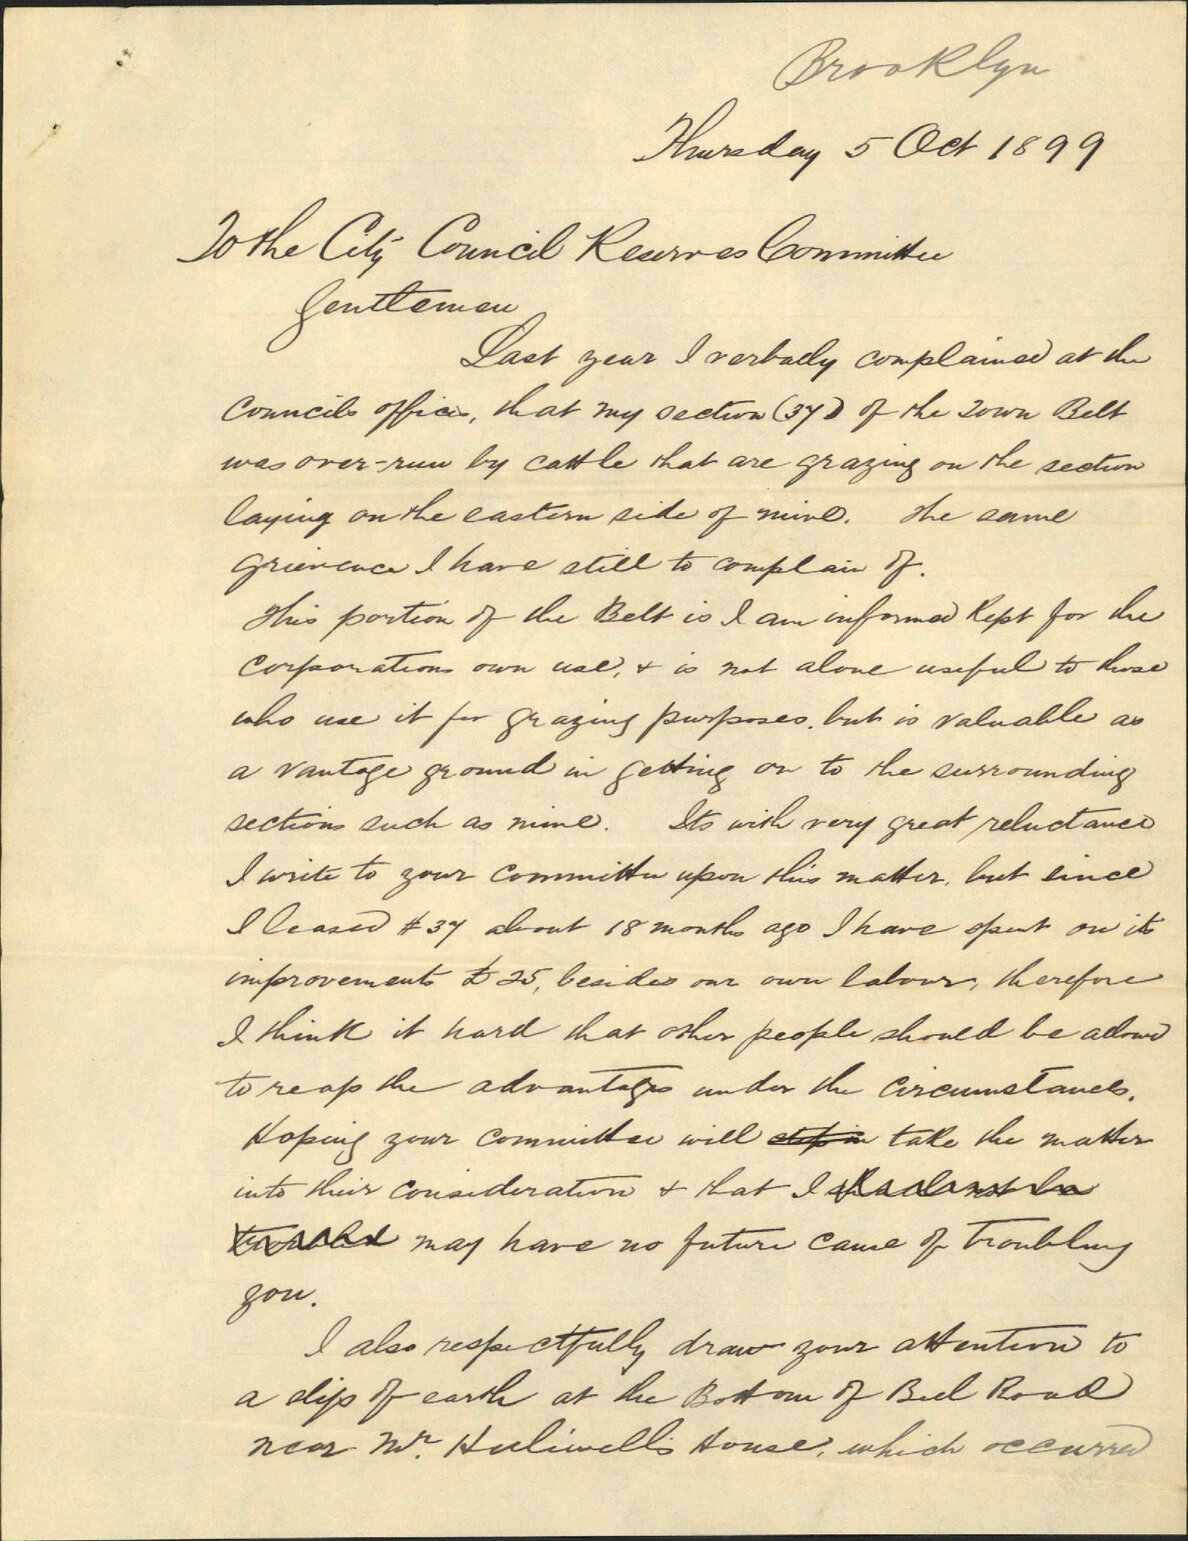 Brooklyn
Thursday 5 Oct 1899
To the City Council Reserves Committee
Gentlemen
Last year I verbally complained at the
Councils offices, that my section (37) of the Town Belt
was over-run by cattle that are grazing on the section
laying on the eastern side of mine. The same
grievence I have still to complain of.
This portion of the Belt is I am informed Kept for the
Corporations own use, & is not alone useful to those
who use it for grazing purposes, but is valuable as
a vantage ground in getting on to the surrounding
sections such as mine. Its with very great reluctance
I write to your committee upon this matter, but since
I leased # 37 about 18 months ago I have spent on its
improvements £25, besides our own labour, therefore
I think it hard that other people should be allowed
to reap the advantages under the circumstances.
Hoping your committee will step in take the matter
into their consideration & that I shall not be
troubled may have no future cause of troubling
you.
I also respectfully draw your attention to
a slip of earth at the Bottom of Bell Road
near Mr. House, which occurred